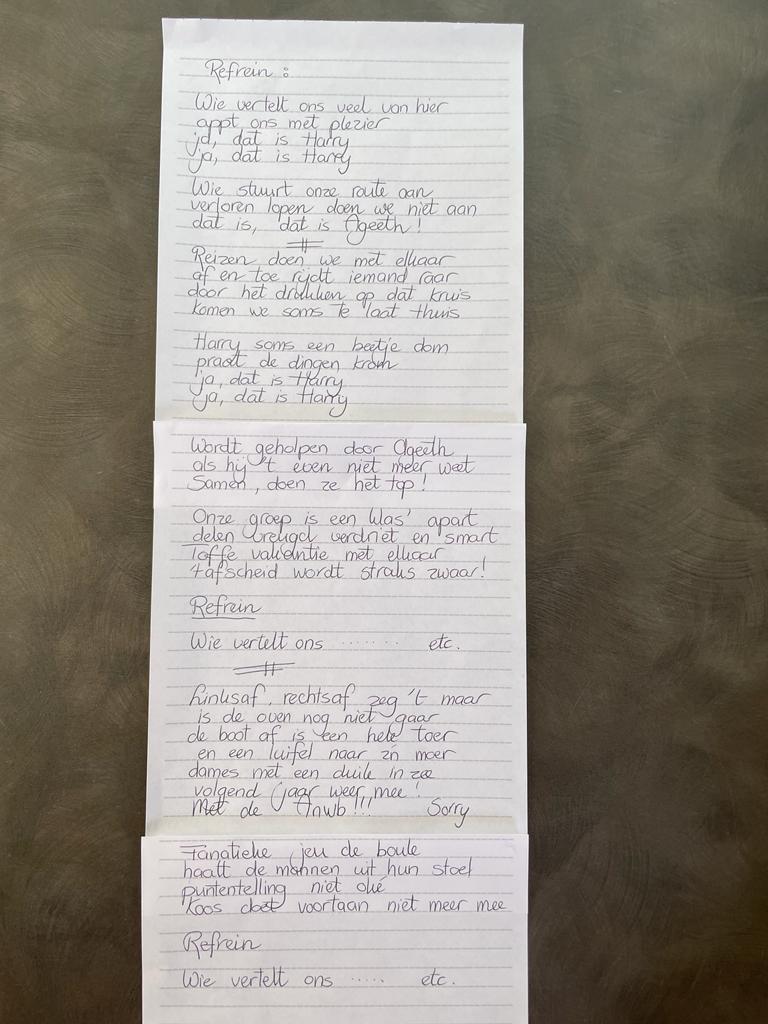 Refrein :
Wie vertelt ons veel van hier
appt ons met plezier
ja, dat is Harry
ja, dat is Harry
Wie stuurt onze route aan
verloren lopen doen we niet aan
dat is, dat is Ageeth !
Reizen doen we met elkaar
af en toe rijdt iemand raar
door het drukken op dat kruis
komen we soms te laat thuis
Harry soms een beetje dom
praat de dingen krom
ja, dat is Harry
ja, dat is Harry
Wordt geholpen door Ageeth
als hij 't even niet meer weet
Samen, doen ze het top !
Onze groep is een klas' apart
delen vreugd verdriet en smart
Toffe vakantie met elkaar
't afscheid wordt straks zwaar!
Refrein
Wie vertelt ons ....... etc.
Linksaf, rechtsaf zeg 't maar
is de oven nog niet gaar
de boot af is een hele toer
en een luifel naar zn moer
dames met een duik in zee
volgend jaar weer mee !
Met de Anwb !!! Sorry
Fanatieke jeu de boule
haalt de mannen uit hun stoel
puntentelling niet oké
Koos doet voortaan niet meer mee
Refrein
Wie vertelt ons ..... etc.